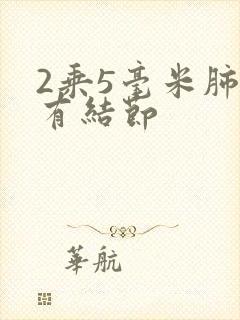 2乘5毫米肺
有結節
華航